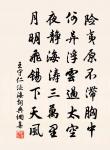 險夷原不滯胸中
何異浮雲過太空
夜靜海濤三萬里
月明飛錫下天風
王守仁泛海詞典網書